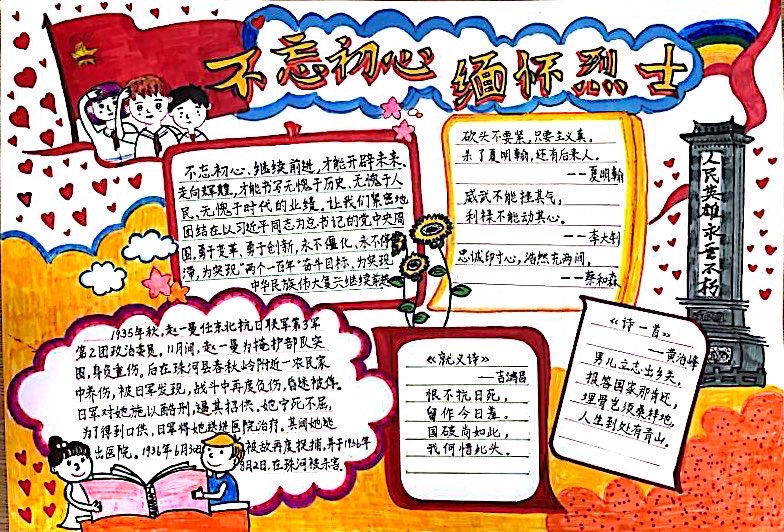 不忘初心 缅怀烈士
不忘初心、继续前进,才能开辟未来、
走向辉煌,才能书写无愧于历史、无愧于人
民、无愧于时代的业绩。让我们紧密地
团结在以习近平同志为总书记的党中央周
围,勇于变革、勇于创新,永不僵化、永不停
滞,为实现"两个一百年"奋斗目标、为实现
中华民族伟大复兴继续奋进
砍头不要紧,只要主义真。
杀了夏明翰,还有后来人。
——夏明翰
威武不能挫其气,
利禄不能动其心。
——李大钊
忠诚印寸心,浩然充两间。
——蔡和森
人民英雄永垂不朽
1935年秋,赵一曼任东北抗日联军第3军
第2团政治委员。11月间,赵一曼为掩护部队突
围,身负重伤,后在珠河县春秋岭附近一农民家
中养伤,被日军发现,战斗中再度负伤,昏迷被俘。
日军对她施以酷刑,逼其招供,她宁死不屈,
为了得到口供,日军将她送进医院治疗,其间她逃
出医院。1936年6月30日被敌再度捉捕,并于1936年
8月2日,在珠河被杀害
《就义诗》
——吉鸿昌
恨不抗日死,
留作今日羞。
国破尚如此,
我何惜此头。
《诗一首》
——黄治峰
男儿立志出乡关,
报答国家那肯还,
埋骨岂须桑梓地,
人生到处有青山。